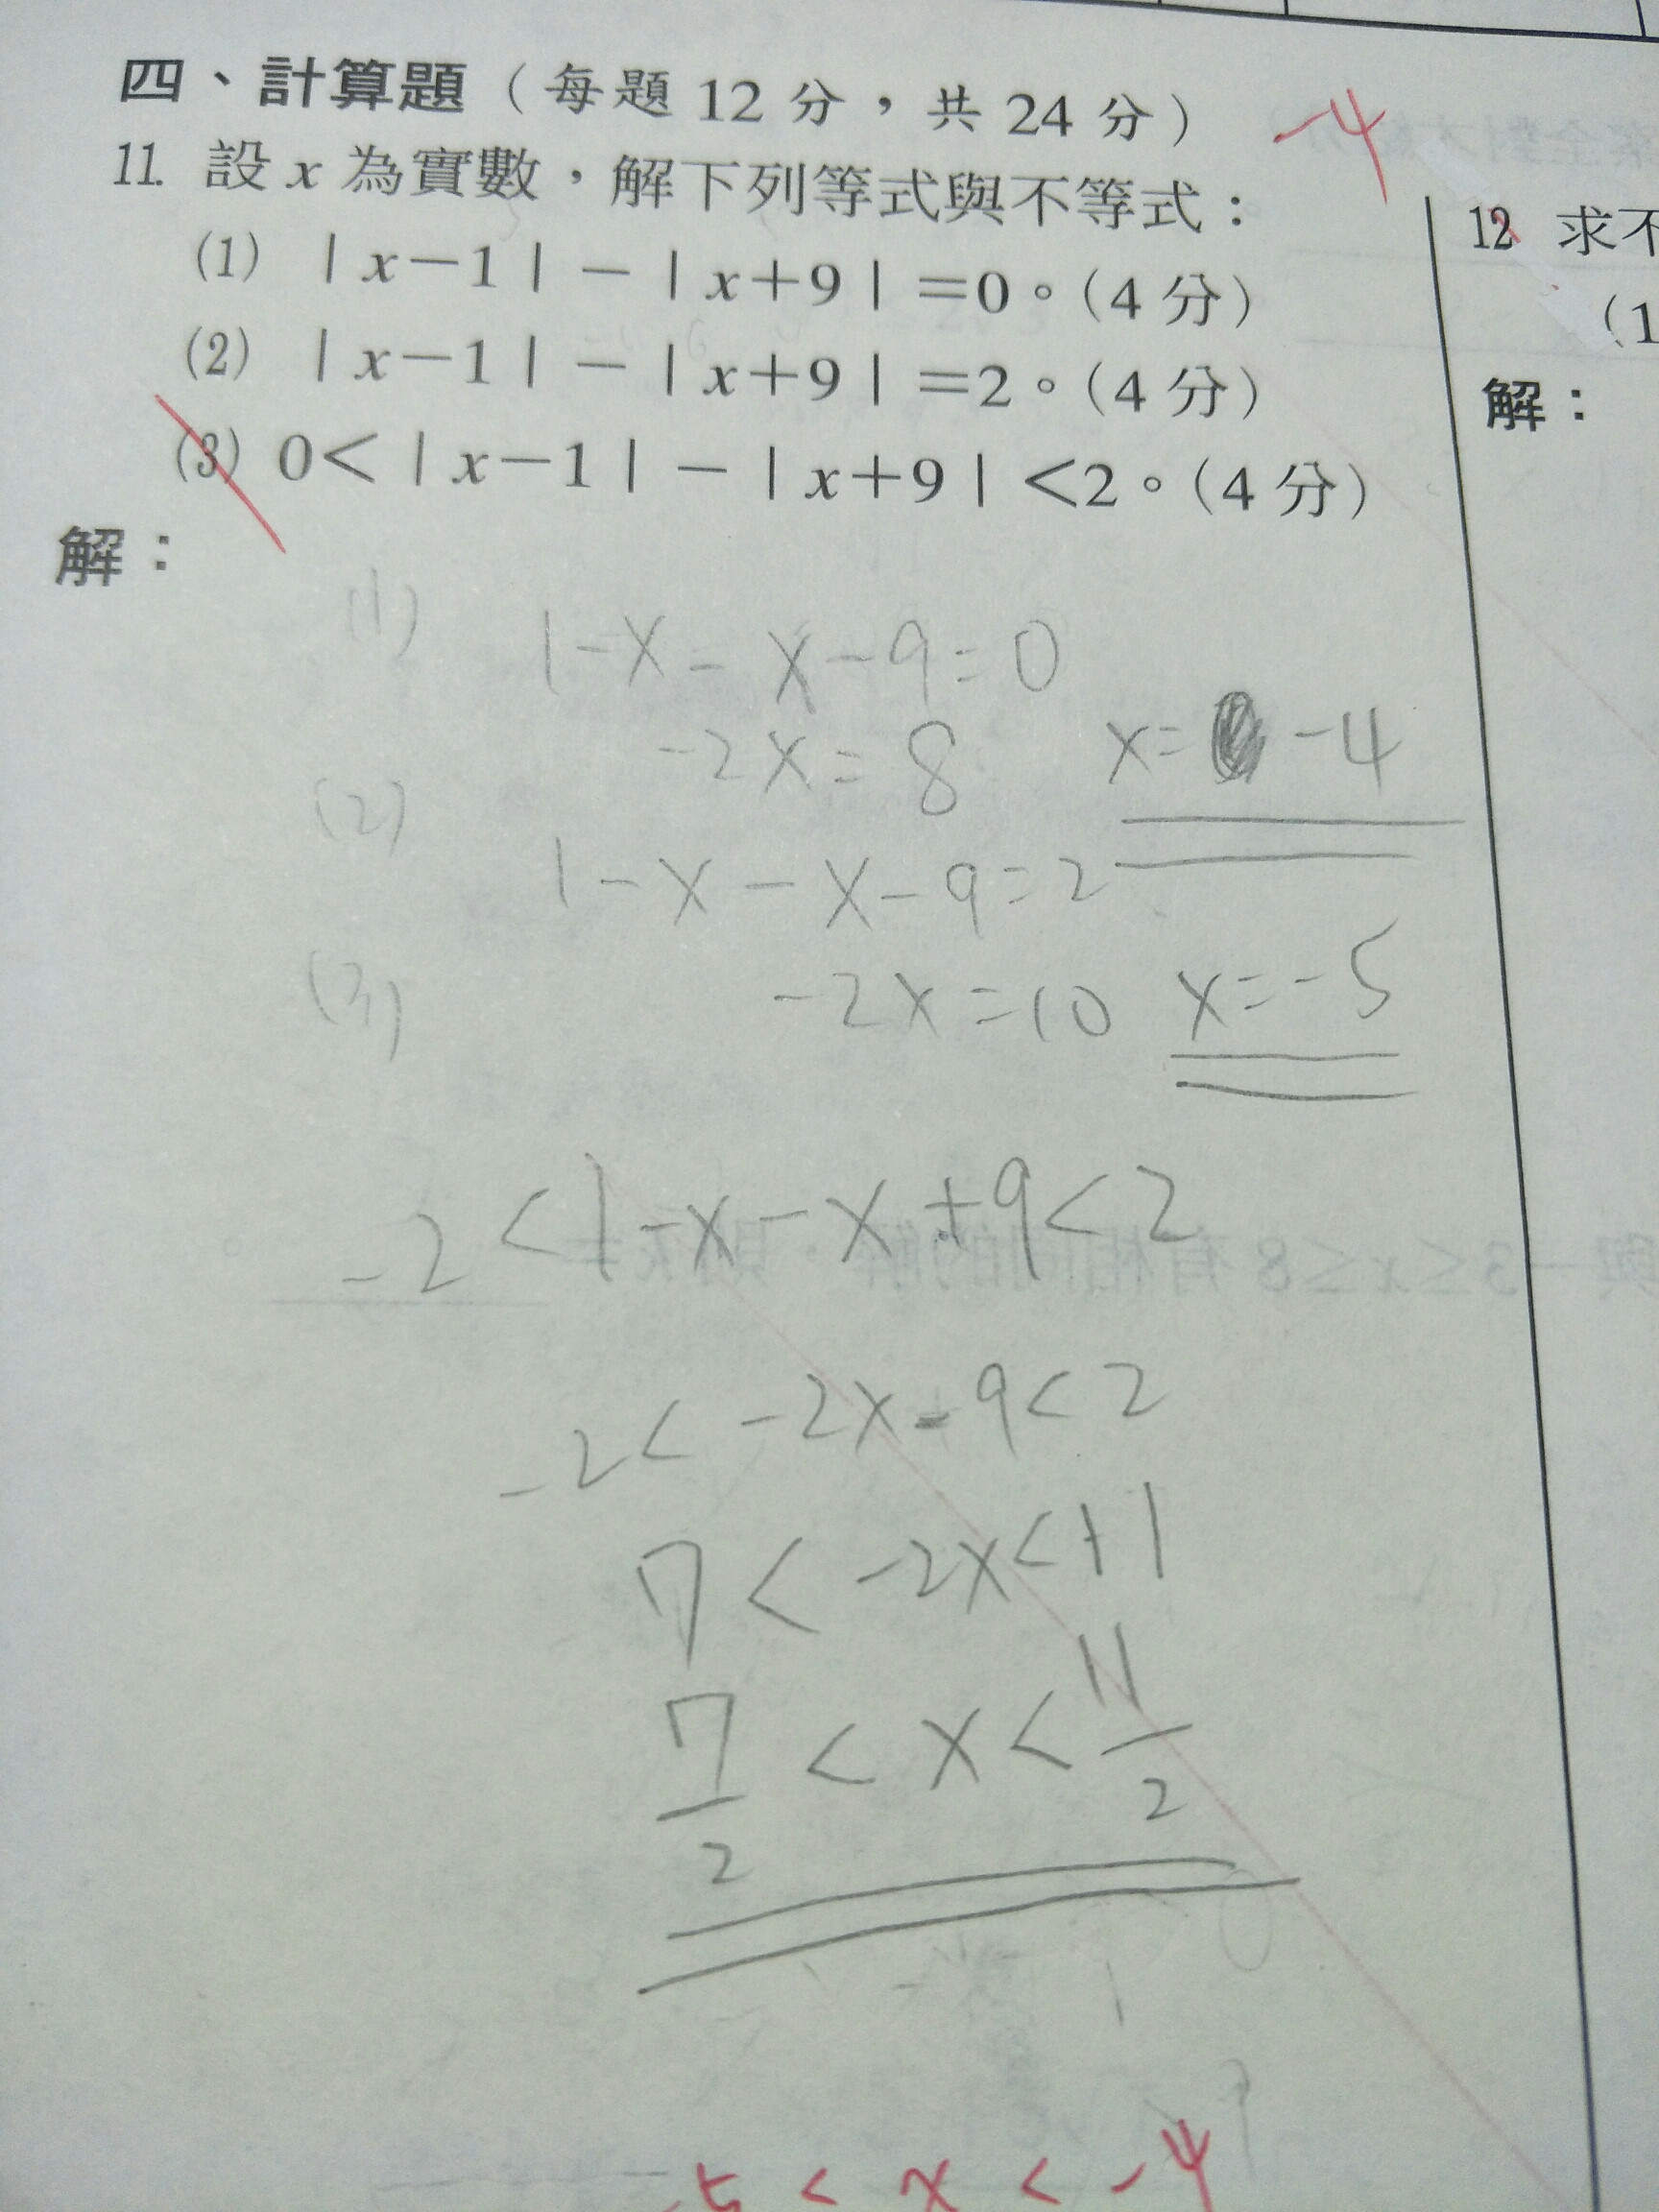 四、計算題（每題 12 分，共 24 分）
-4
11. 設 x 為實數，解下列等式與不等式：
(1) | x－1 | － | x＋9 | ＝0。(4 分)
(2) | x－1 | － | x＋9 | ＝2。(4 分)
(3) 0＜ | x－1 | － | x＋9 | ＜2。(4 分)
解：
(1) 1-x-x-9=0
-2x=8 x= -4
(2)
1-x-x-9=2
(3) -2x=10 x=-5
-2<1-x-x+9<2
-2<-2x-9<2
7<-2x<11
7/2<x<11/2
-5<x<-4
12 求不
(1
解：
與－3≤x≤8 有相同的解，則